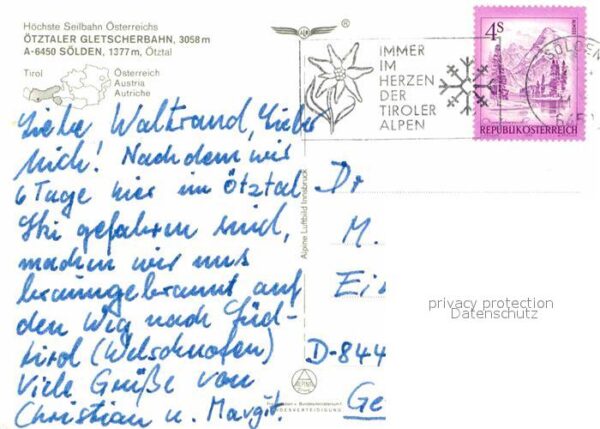 Höchste Seilbahn Österreichs
ÖTZTALER GLETSCHERBAHN, 3058 m
A-6450 SÖLDEN, 1377 m, Ötztal
Tirol
Österreich
Austria
Autriche
Liebe Waltraud, Lieber
Mich! Nachdem wir
6 Tage hier im Ötztal
Ski gefahren sind,
machen wir uns
braungebrannt auf
den Weg nach Süd-
tirol (Welschnofen)
Viele Grüße von
Christian u. Margit.
Alpine Luftbild Innsbruck
ALPINE
LANDESVERTEIDIGUNG
®
IMMER
IM
HERZEN
DER
TIROLER
ALPEN
4S
REPUBLIK ÖSTERREICH
SÖLDEN
Dr
M.
Ei
D-844
Ge
privacy protection
Datenschutz